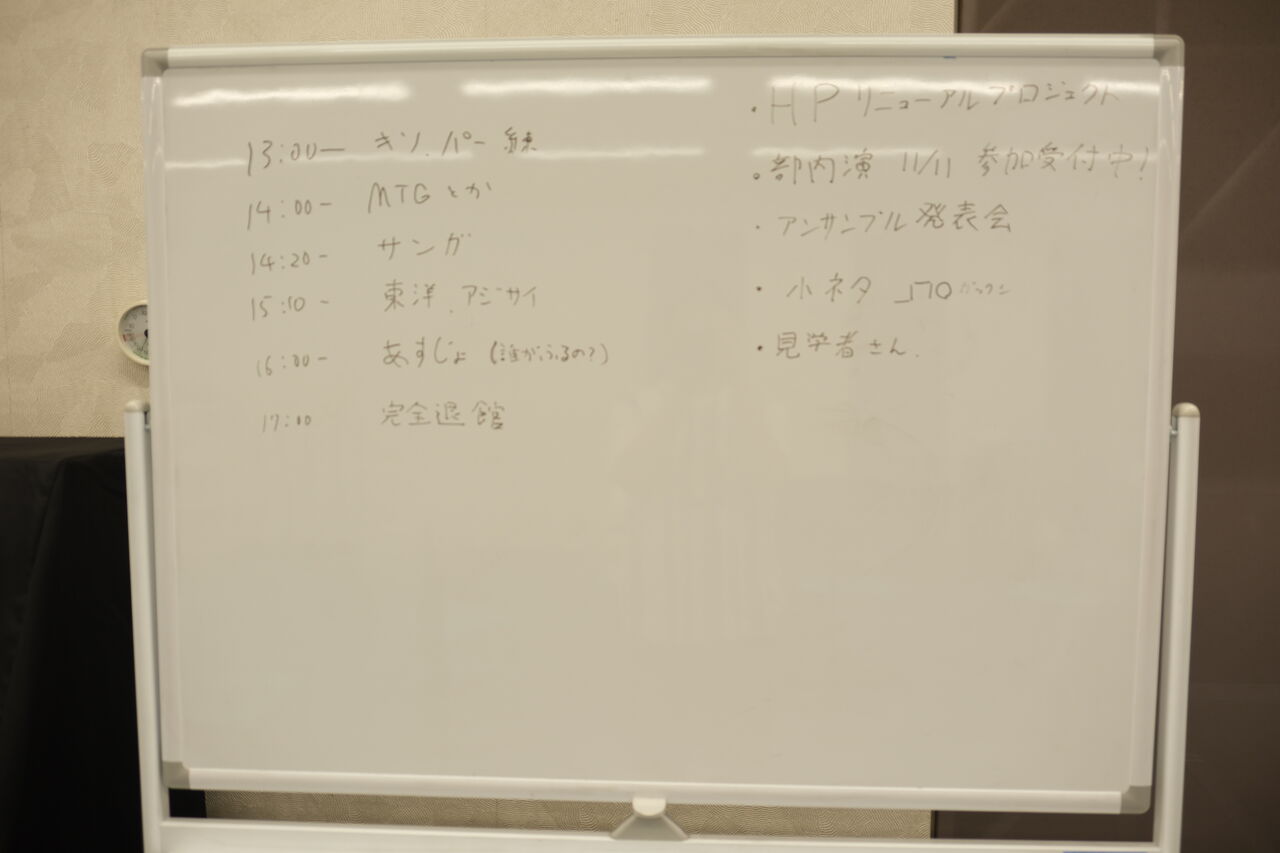 13:00ー キソ、パー練
14:00- MTGとか
14:20- サンガ
15:10- 東洋、アジサイ
16:00- あすじょ(誰がふるの?)
17:00 完全退館
・HPリニューアルプロジェクト
。部内演 11/11 参加受付中!
・アンサンブル発表会
・小ネタ
・見学者さん.